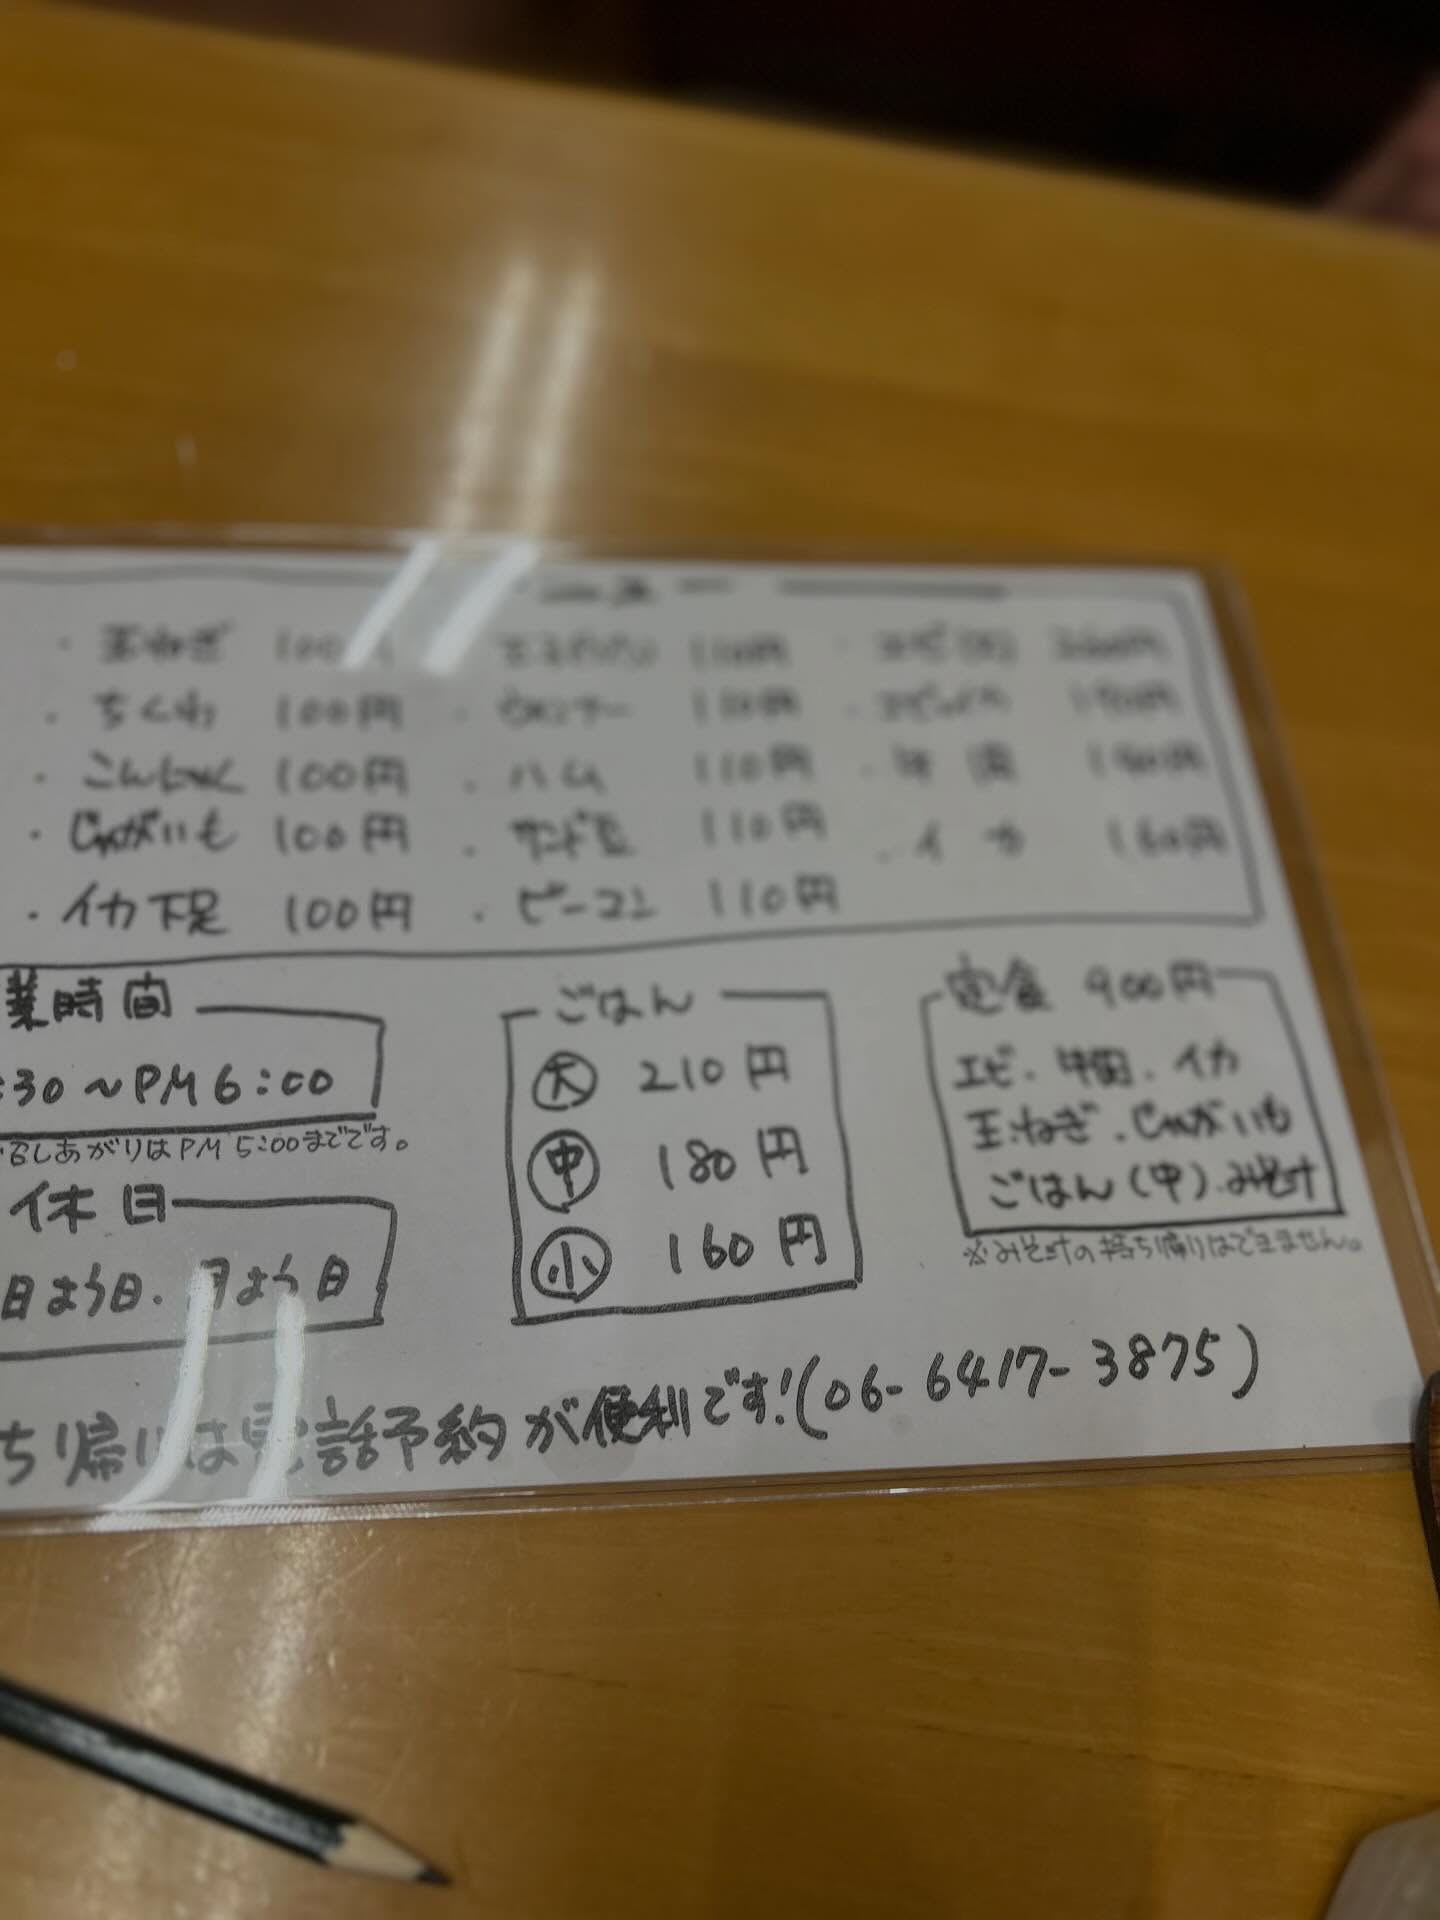 ・玉ねぎ 100円 110円
・ちくわ 100円 ・ウインナー 110円
・こんにゃく 100円 ・ハム 110円
・じゃがいも 100円 110円 ・イカ 160円
・イカ下足 100円 ・ピーマン 110円
業時間
:30〜PM6:00
召しあがりはPM5:00までです。
休日
日よう日.月よう日
ごはん
大 210円
中 180円
小 160円
定食 900円
エビ. . イカ
玉ねぎ.じゃがいも
ごはん(中).みそ汁
※みそ汁の持ち帰りはできません。
ち帰りは電話予約が便利です!(06-6417-3875)